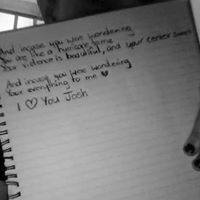 And incase you were wondering
You are like a hurricane
Your violence is beautiful, and your center sweet
And incase you were wondering
Your everything to me ♥
I ♡ You Josh